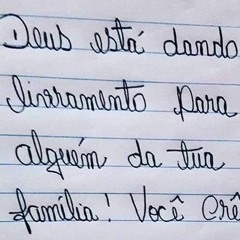 Deus está dando
livramento para
alguém da tua
família! Você Crê